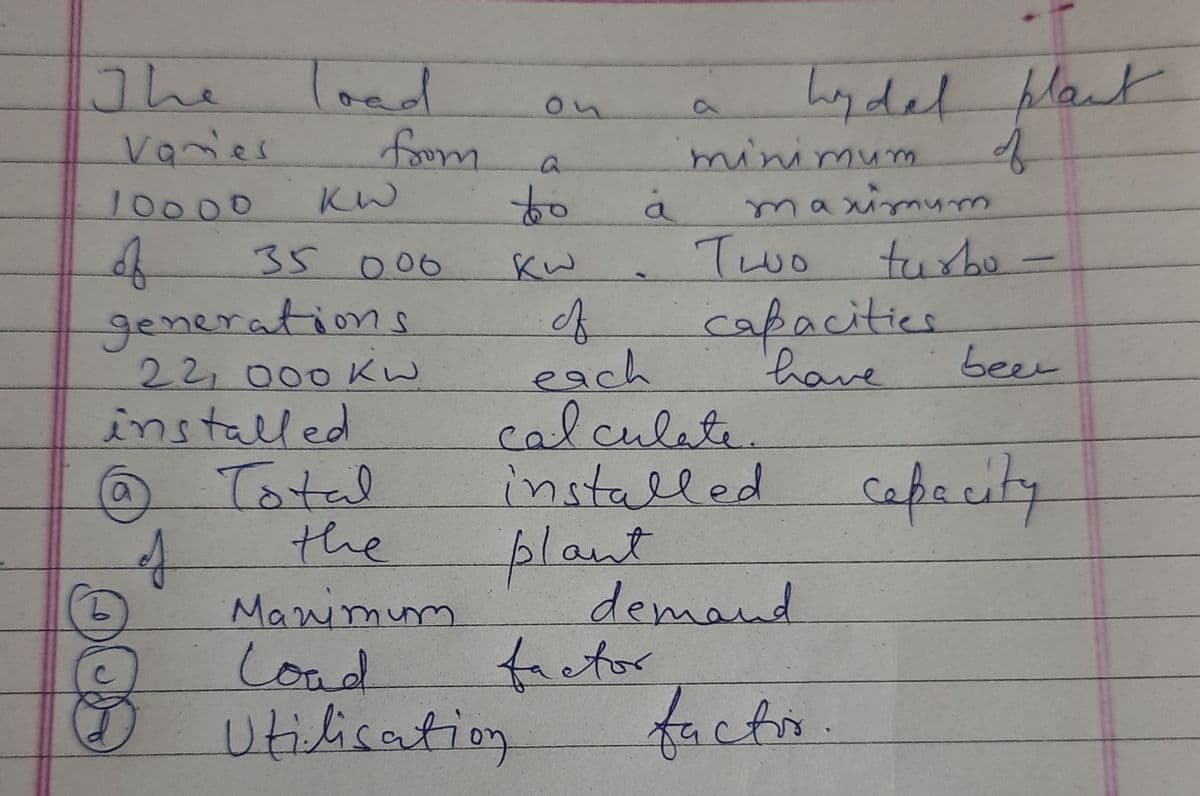 The load on a hydel plant
varies from a minimum of
10000 KW to a maximum
of 35 000 KW. Two turbo-
generations of capacities
22,000 KW each have been
installed calculate.
(a) Total installed capacity
of the plant
(b) Maximum demand
(c) Load factor
(d) Utilisation factor.